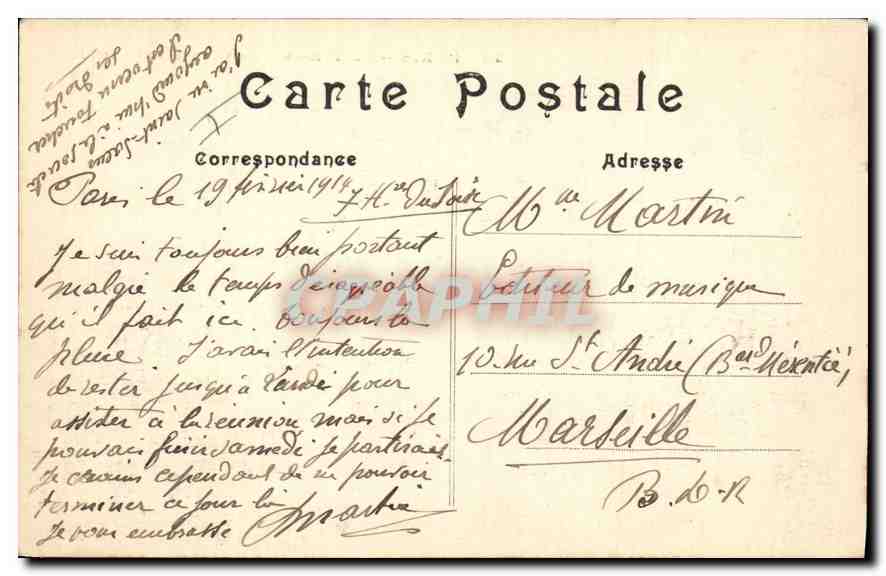 J'ai vu Saint-Saens
aujourd'hui à la société
il est venu toucher
ses droits
Carte Postale
Correspondance
Adresse
Paris le 19 février 1914
7 H.res du Soir
Je suis toujours bien portant
malgré le temps désagréable
qu'il fait ici toujours la
pluie J'avais l'intention
de rester jusqu'à Lundi pour
assister à la reunion mais si je
pouvais finir samedi je partirais
Je crains cependant de ne pouvoir
terminer ce jour là
Je vous embrasse Martin
Mme Martin
Editeur de musique
10 rue St André (Bard Mérentié)
Marseille
B. d. R
CPAPHIL